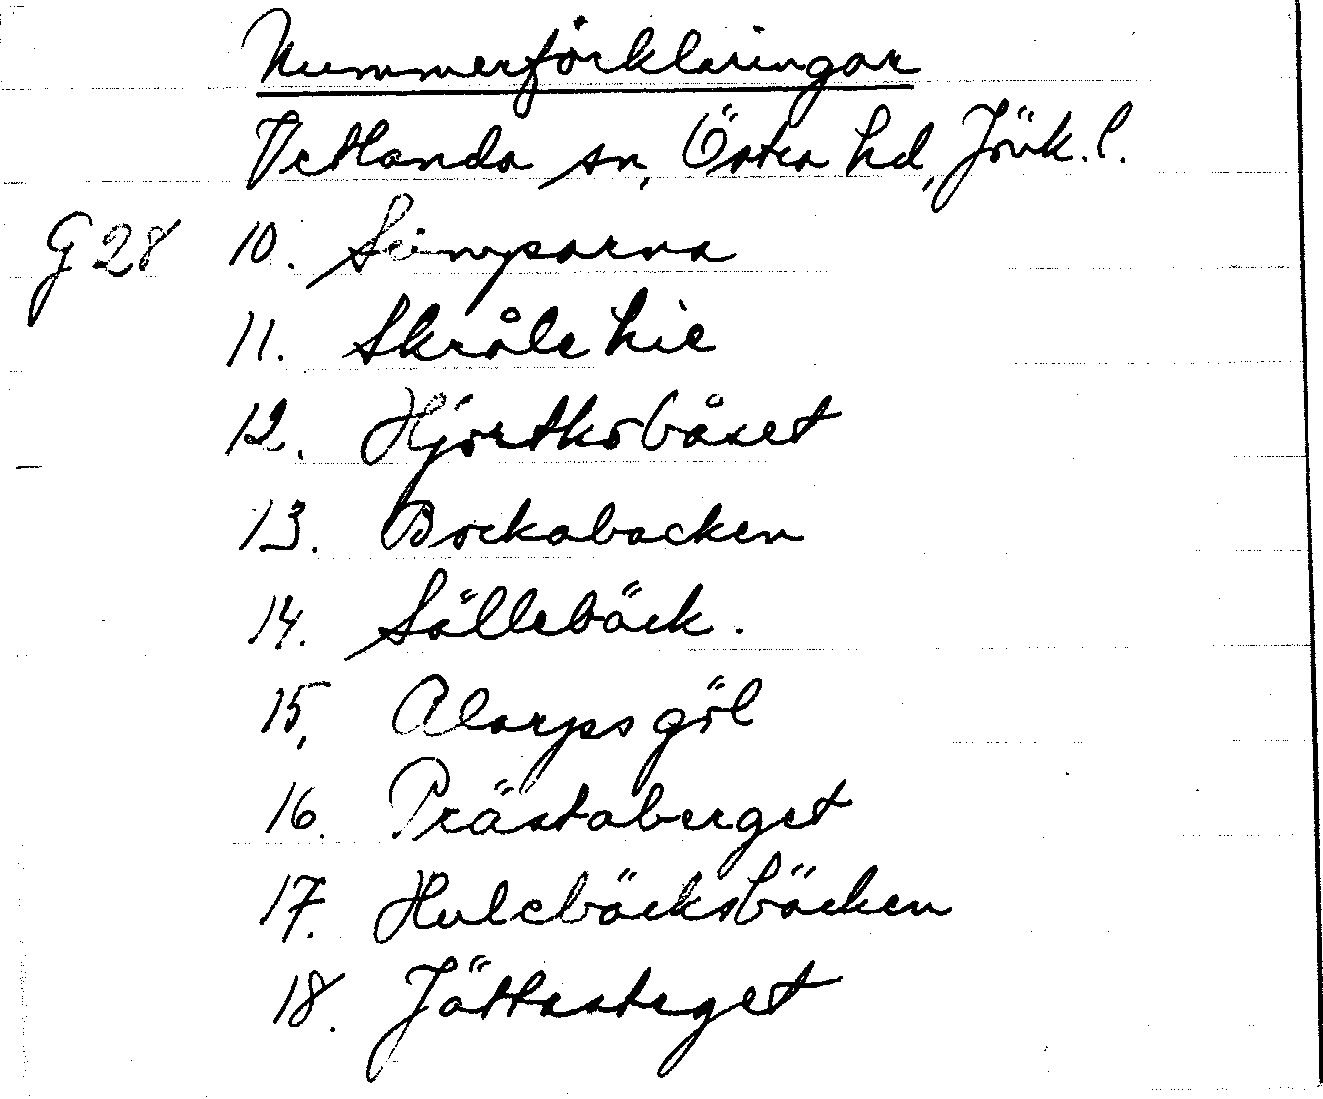 Nummerförklaringar
Vetlanda sn, Östra hd, Jönk. l.
G 28 10. Simparna
11. Skråle hie
12. Hjortkobåset
13. Bockabacken
14. Sällebäck.
15, Alarps göl
16. Prästaberget
17. Hulebäcksbäcken
18. Jättasteget